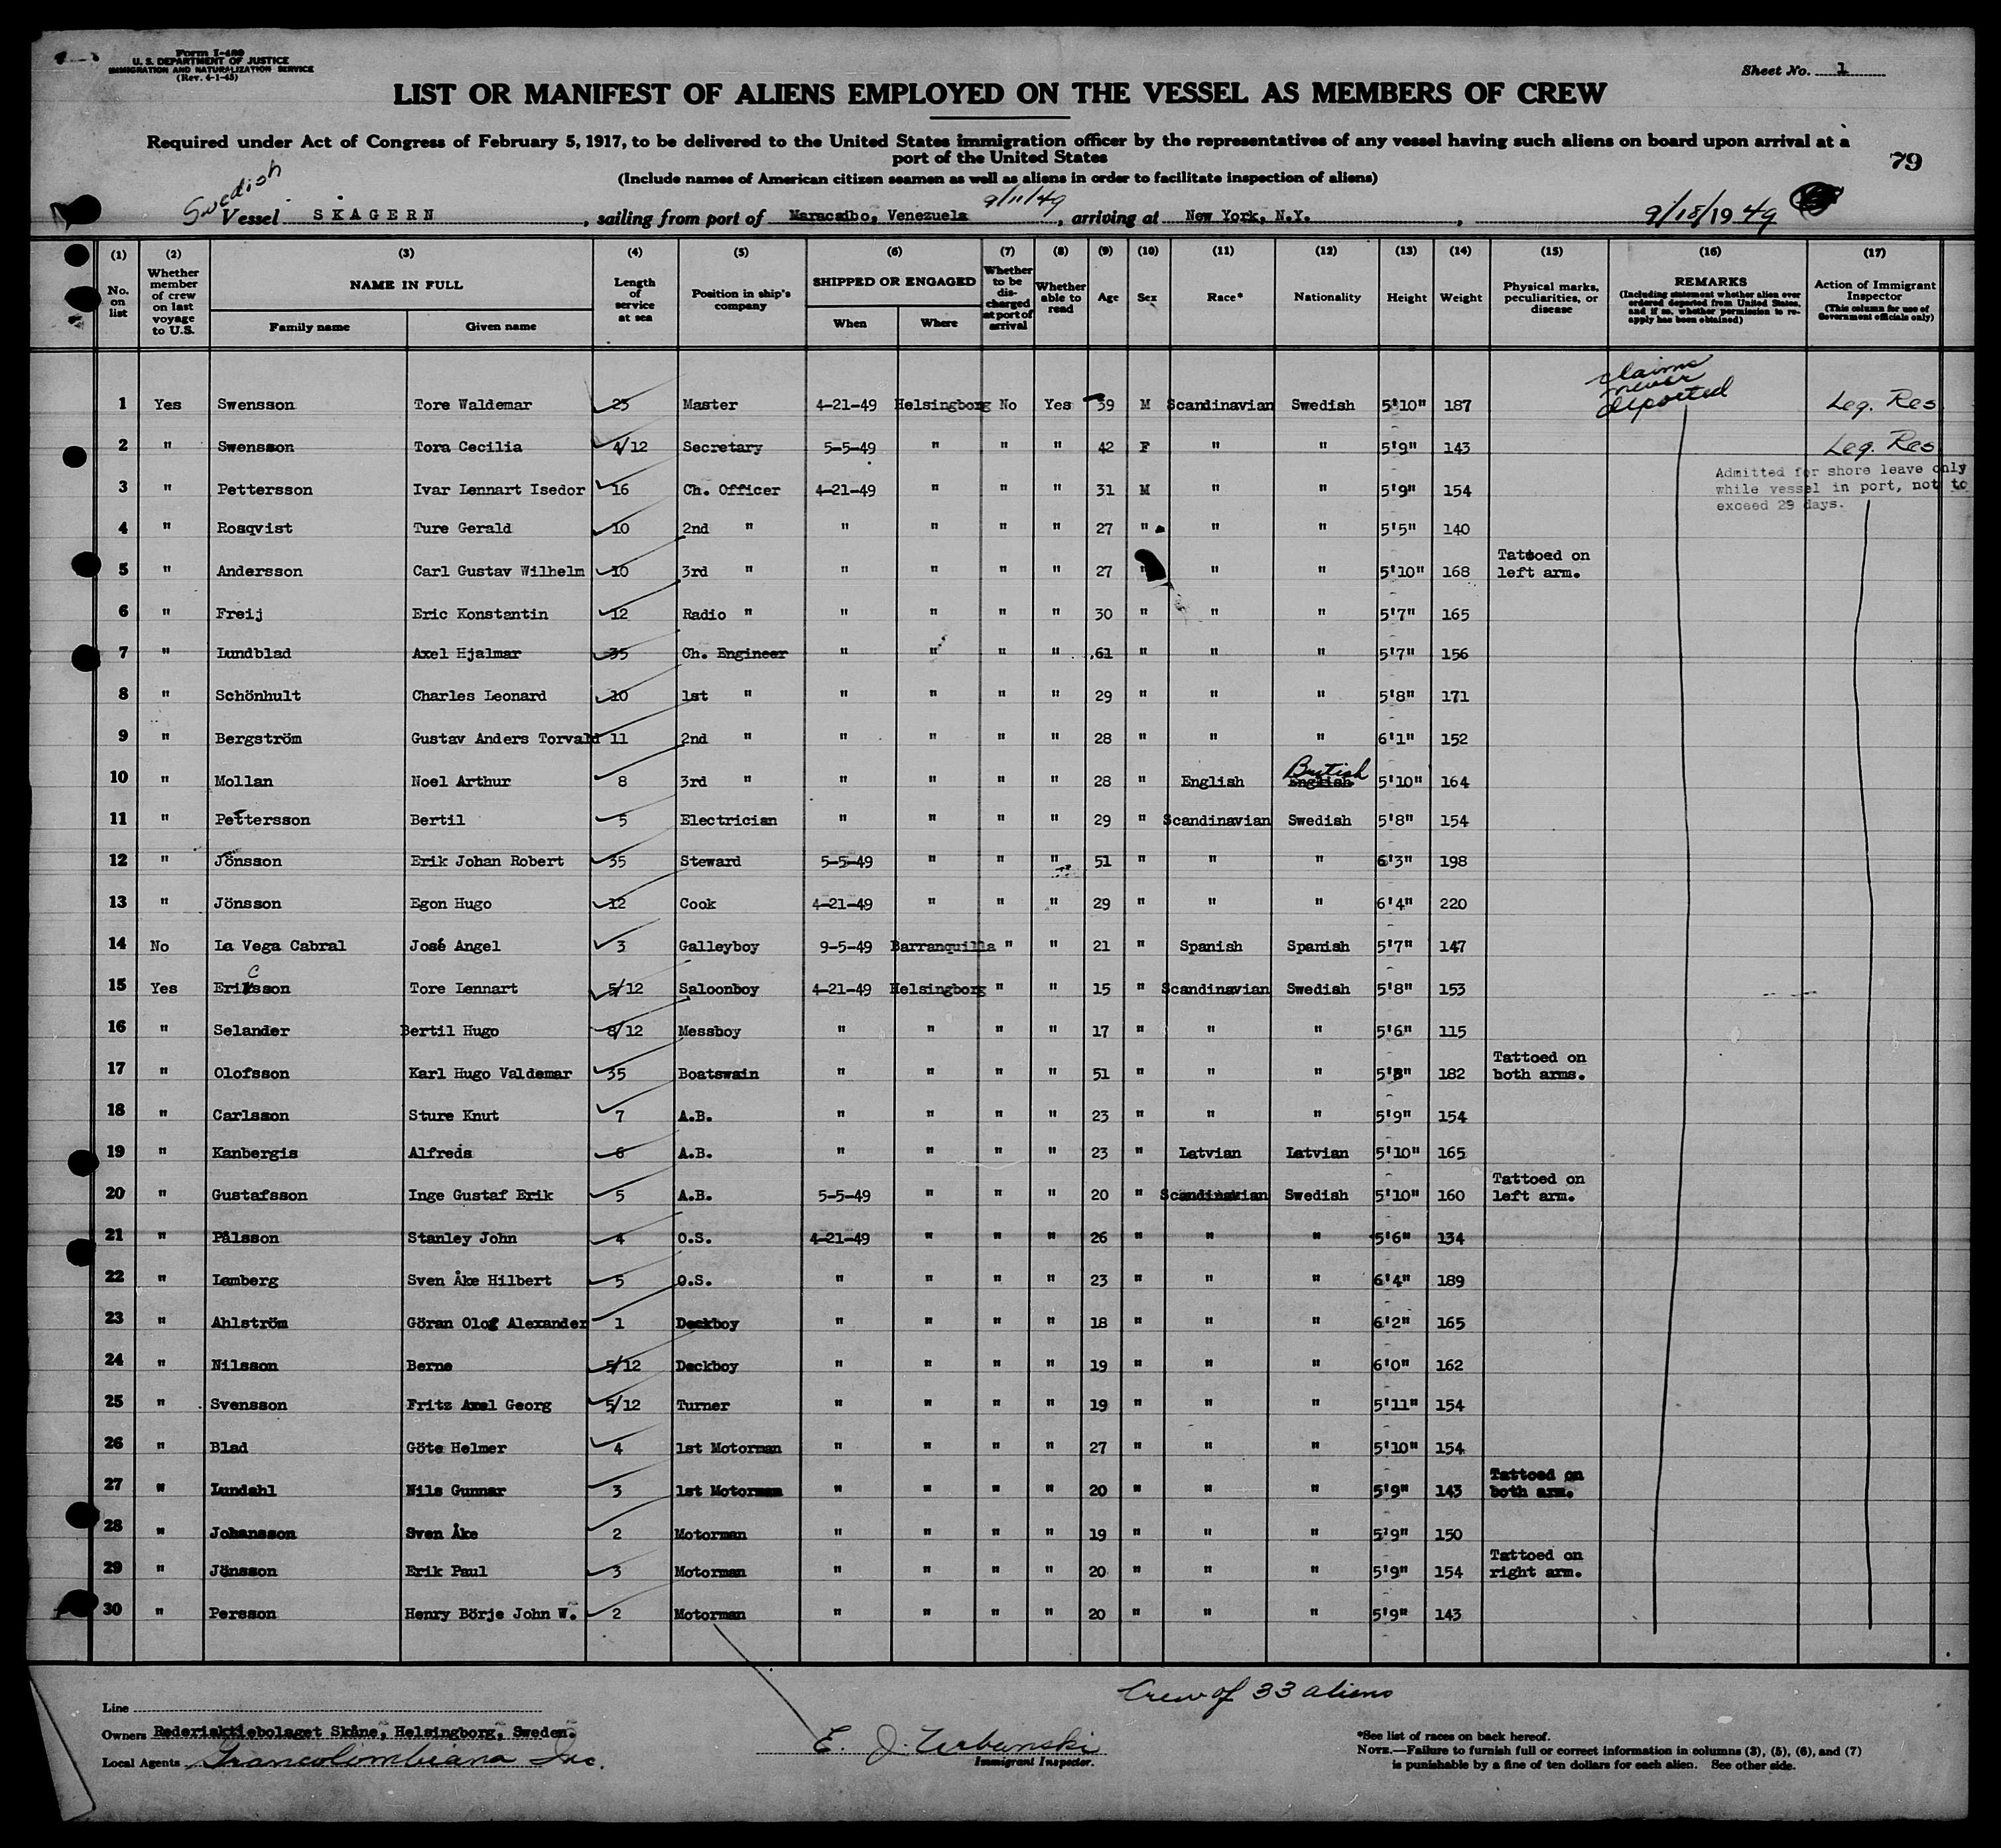 Form I-489
U. S. DEPARTMENT OF JUSTICE
IMMIGRATION AND NATURALIZATION SERVICE
(Rev. 4-1-45)
Sheet No. 1
LIST OR MANIFEST OF ALIENS EMPLOYED ON THE VESSEL AS MEMBERS OF CREW
Required under Act of Congress of February 5, 1917, to be delivered to the United States immigration officer by the representatives of any vessel having such aliens on board upon arrival at a
port of the United States
79
(Include names of American citizen seamen as well as aliens in order to facilitate inspection of aliens)
Swedish
9/11/49
Vessel SKAGERN, sailing from port of Maracaibo, Venezuela, arriving at New York, N.Y., 9/18/19 49
(1) (2) (3) (4) (5) (6) (7) (8) (9) (10) (11) (12) (13) (14) (15) (16) (17)
No. on list
Whether member of crew on last voyage to U.S.
NAME IN FULL
Family name
Given name
Length of service at sea
Position in ship's company
SHIPPED OR ENGAGED
When
Where
Whether to be discharged at port of arrival
Whether able to read
Age
Sex
Race*
Nationality
Height
Weight
Physical marks, peculiarities, or disease
REMARKS
(Including statement whether alien ever ordered deported from United States, and if so, whether permission to reapply has been obtained)
Action of Immigrant Inspector
(This column for use of Government officials only)
claims
never
deported
1 Yes Swensson Tore Waldemar 23 Master 4-21-49 Helsingborg No Yes 39 M Scandinavian Swedish 5'10" 187 Leg. Res
2 " Swensson Tora Cecilia 4/12 Secretary 5-5-49 " " " 42 F " " 5'9" 143 Leg. Res
Admitted for shore leave only
while vessel in port, not to
exceed 29 days.
3 " Pettersson Ivar Lennart Isedor 16 Ch. Officer 4-21-49 " " " 31 M " " 5'9" 154
4 " Rosqvist Ture Gerald 10 2nd " " " " " 27 " " " 5'5" 140
5 " Andersson Carl Gustav Wilhelm 10 3rd " " " " " 27 " " " 5'10" 168 Tattoed on left arm.
6 " Freij Eric Konstantin 12 Radio " " " " " 30 " " " 5'7" 165
7 " Lundblad Axel Hjalmar 35 Ch. Engineer " " " " 61 " " " 5'7" 156
8 " Schönhult Charles Leonard 10 1st " " " " " 29 " " " 5'8" 171
9 " Bergström Gustav Anders Torvald 11 2nd " " " " " 28 " " " 6'1" 152
10 " Mollan Noel Arthur 8 3rd " " " " " 28 " English English British 5'10" 164
11 " Pettersson Bertil 5 Electrician " " " " 29 " Scandinavian Swedish 5'8" 154
12 " Jönsson Erik Johan Robert 35 Steward 5-5-49 " " " 51 " " " 6'3" 198
13 " Jönsson Egon Hugo 12 Cook 4-21-49 " " " 29 " " " 6'4" 220
14 No La Vega Cabral José Angel 3 Galleyboy 9-5-49 Barranquilla " " 21 " Spanish Spanish 5'7" 147
15 Yes Ericsson Tore Lennart 5/12 Saloonboy 4-21-49 Helsingborg " " 15 " Scandinavian Swedish 5'8" 153
16 " Selander Bertil Hugo 8/12 Messboy " " " " 17 " " " 5'6" 115
17 " Olofsson Karl Hugo Valdemar 35 Boatswain " " " " 51 " " " 5'8" 182 Tattoed on both arms.
18 " Carlsson Sture Knut 7 A.B. " " " " 23 " " " 5'9" 154
19 " Kanbergis Alfreds 6 A.B. " " " " 23 " Latvian Latvian 5'10" 165
20 " Gustafsson Inge Gustaf Erik 5 A.B. 5-5-49 " " " 20 " Scandinavian Swedish 5'10" 160 Tattoed on left arm.
21 " Pålsson Stanley John 4 O.S. 4-21-49 " " " 26 " " " 5'6" 134
22 " Lamberg Sven Åke Hilbert 5 O.S. " " " " 23 " " " 6'4" 189
23 " Ahlström Göran Olof Alexander 1 Deckboy " " " " 18 " " " 6'2" 165
24 " Nilsson Berne 5/12 Deckboy " " " " 19 " " " 6'0" 162
25 " Svensson Fritz Axel Georg 5/12 Turner " " " " 19 " " " 5'11" 154
26 " Blad Göte Helmer 4 1st Motorman " " " " 27 " " " 5'10" 154
27 " Lundahl Nils Gunnar 3 1st Motorman " " " " 20 " " " 5'9" 143 Tattoed on both arm.
28 " Johansson Sven Åke 2 Motorman " " " " 19 " " " 5'9" 150
29 " Jönsson Erik Paul 3 Motorman " " " " 20 " " " 5'9" 154 Tattoed on right arm.
30 " Persson Henry Börje John W. 2 Motorman " " " " 20 " " " 5'9" 143
Crew of 33 aliens
Line
Owners Rederiaktiebolaget Skåne, Helsingborg, Sweden.
Local Agents Grancolombiana Inc.
E. J. Urbanski
Immigrant Inspector.
*See list of races on back hereof.
NOTE.—Failure to furnish full or correct information in columns (3), (5), (6), and (7)
is punishable by a fine of ten dollars for each alien. See other side.